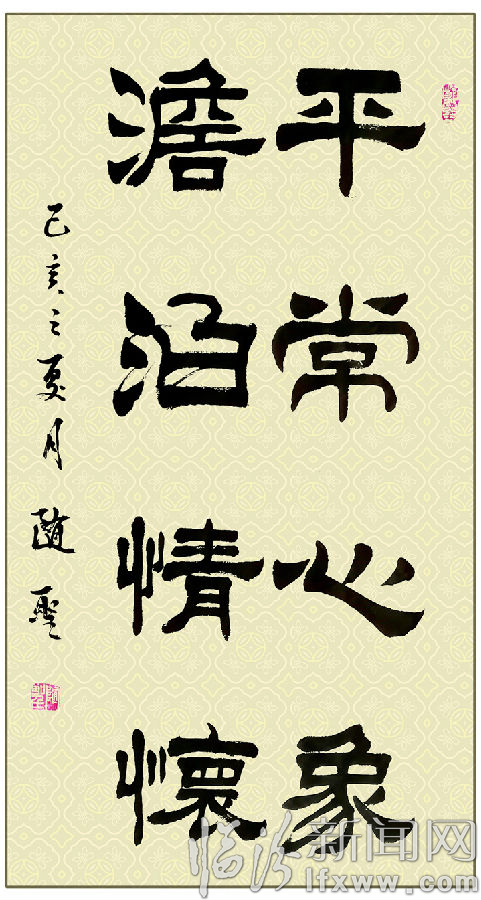 平常心象
澹泊情懷
己亥之夏月 随聖
临汾新闻网
lfxww.com